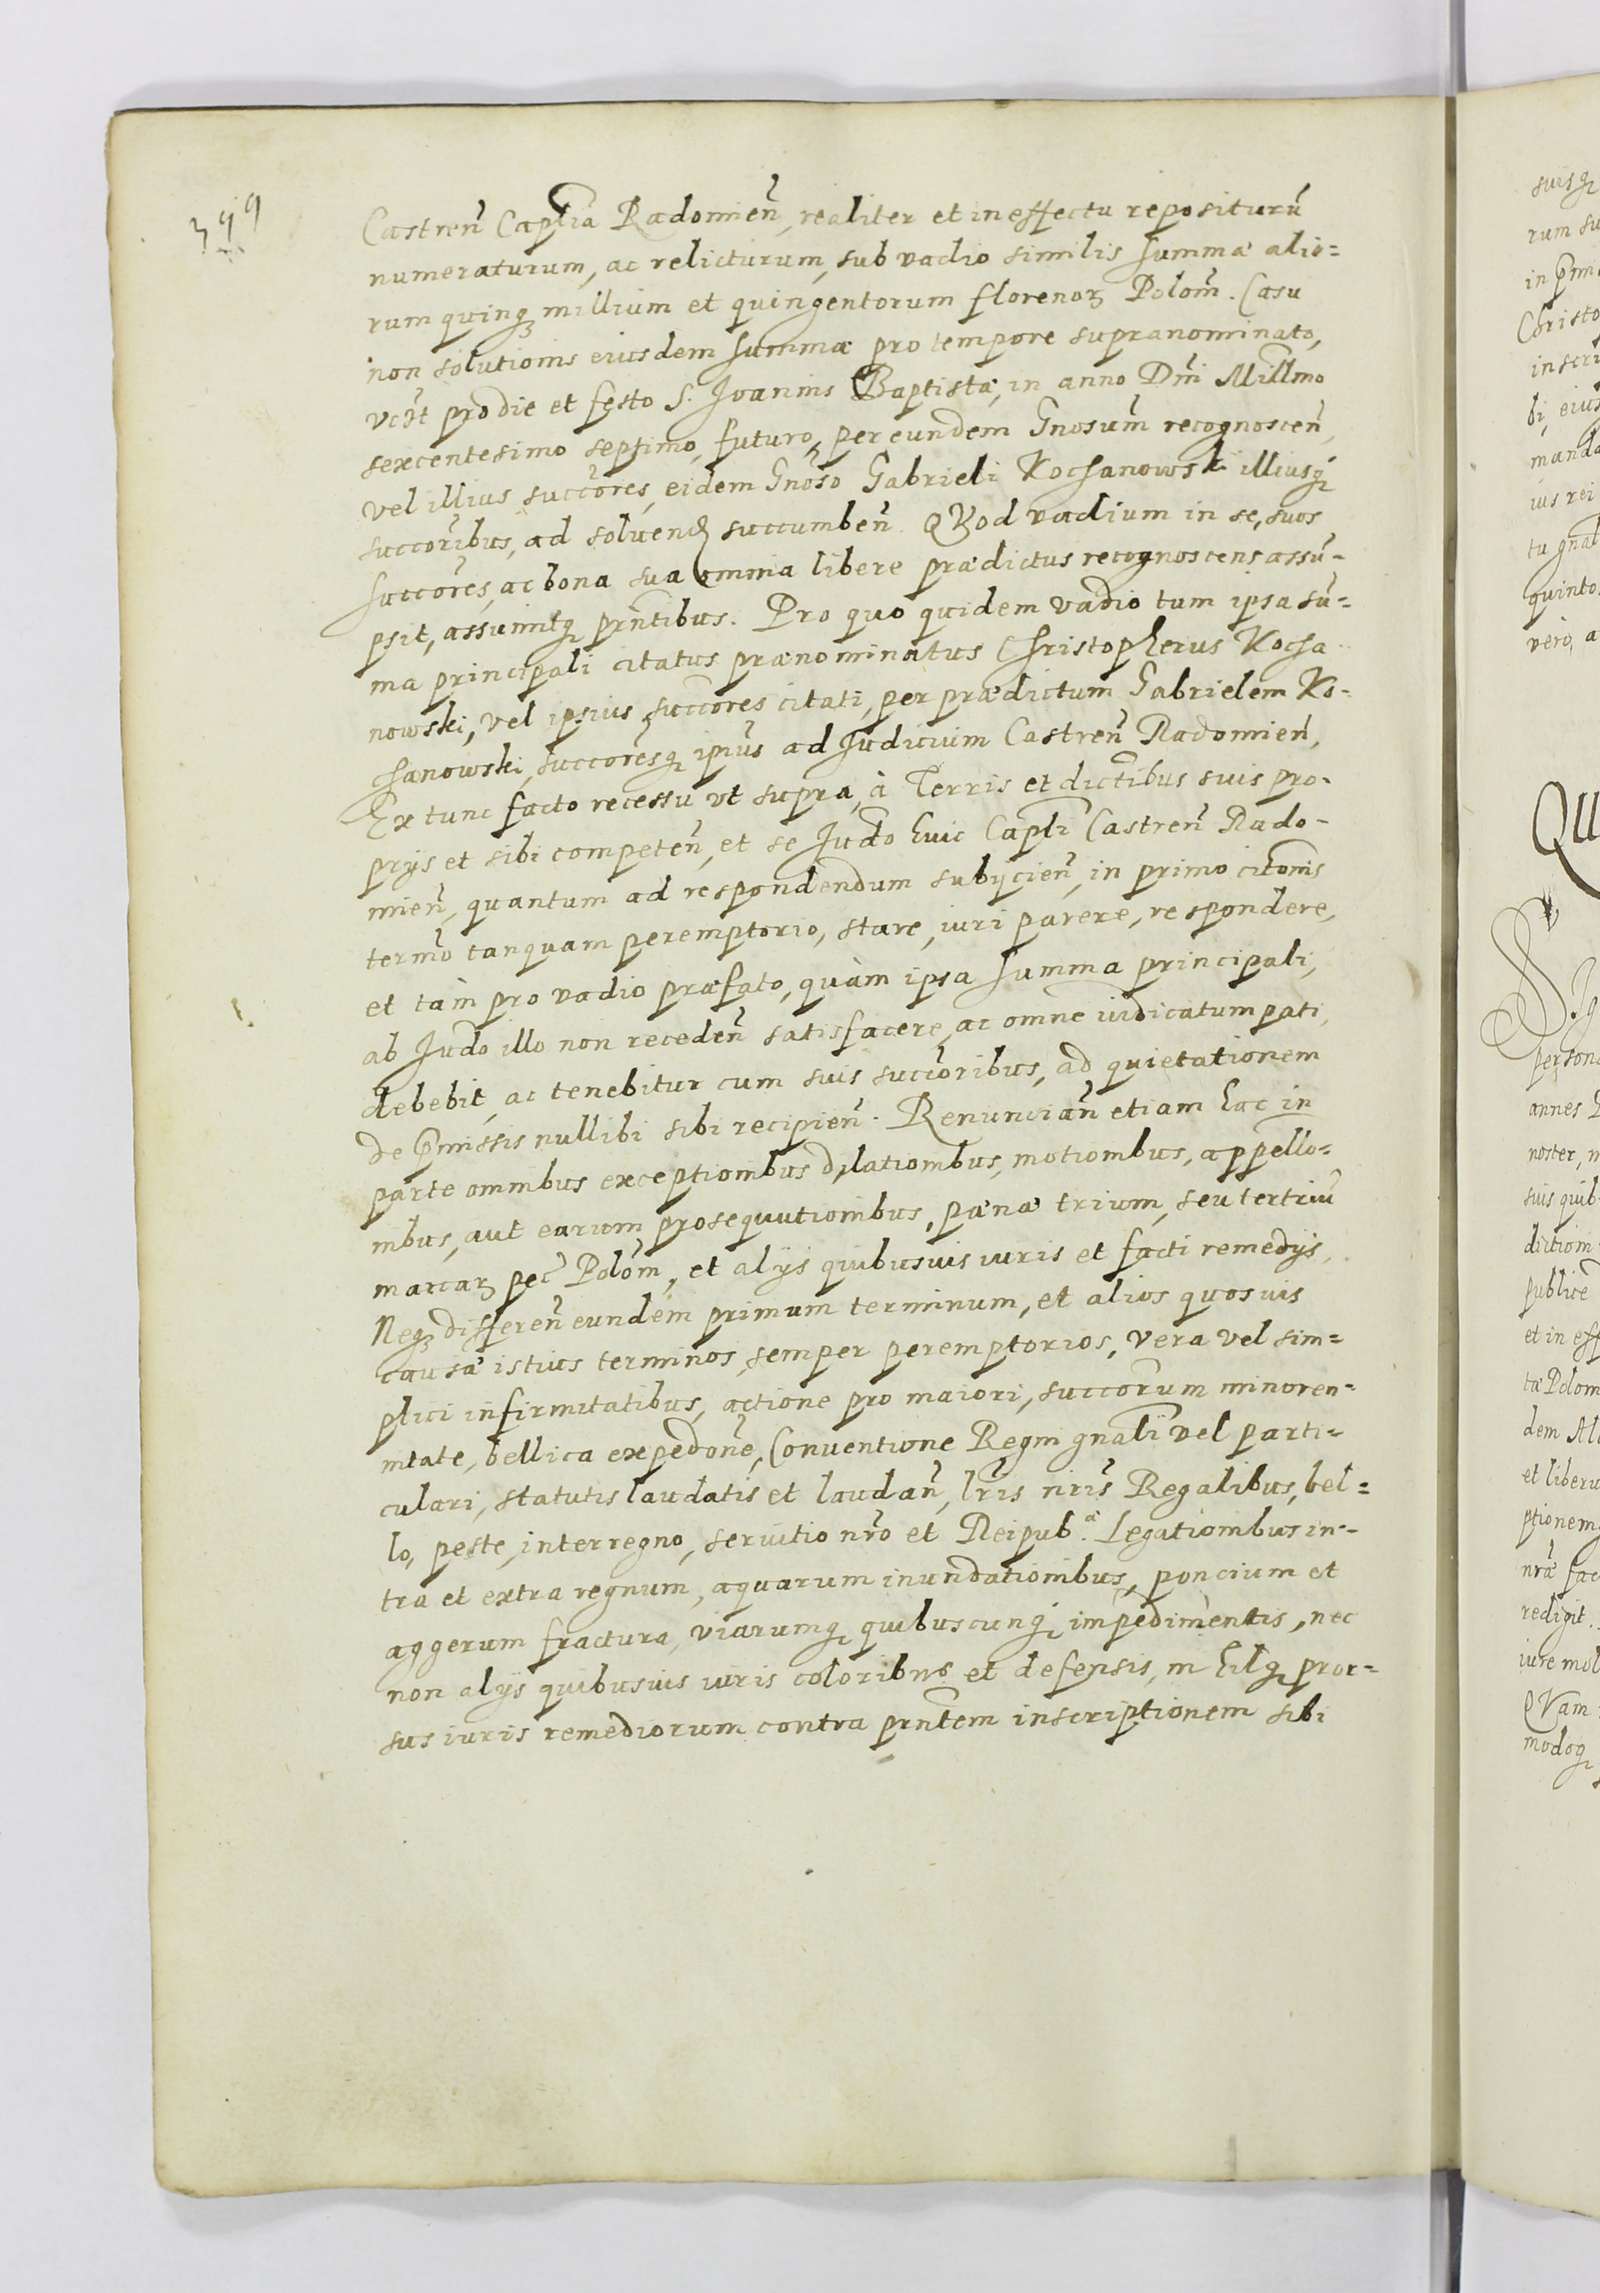 399
Castren̄ Capl̄ia Radomien̄, realiter et in effectu repositurū
numeraturum, ac relicturum, sub vadio similis summæ alio=
rum quinqꝫ millium et quingentorum florenoꝝ Polon̄. Casu
non solutionis eiusdem summæ pro tempore supranominato,
vz̄t pro die et festo S. Ioannis Baptistæ, in anno Dn̄i Mill̄mo
sexcentesimo septimo, futuro, per eundem Gn̄osum recognoscen̄,
vel illius succ̄ores, eidem Gn̄oso Gabrieli Kochanowski illiusqꝫ
succ̄oribus, ad soluend̄ succumben̄. QVod vadium in se, suos
succ̄ores, ac bona sua omnia libere prædictus recognoscens assu=
psit, assumitqꝫ prn̄tibus. Pro quo quidem vadio tum ipsa su=
ma principali citatus prænominatus Christopherus Kocha
nowski, vel ipsius succ̄ores citati, per prædictum Gabrielem Ko=
chanowski, succ̄oresqꝫ ipīus ad Iudicium Castren̄ Radomien̄,
Ex tunc facto recessu vt supra, à Terris et dict̄ibus suis pro=
prijs et sibi competen̄, et se Iud̄o huic Capl̄i Castren̄ Rado=
mien̄, quantum ad respondendum subijcien̄, in primo cit̄onis
term̄o tanquam peremptorio, stare, iuri parere, respondere,
et tàm pro vadio præfato, quàm ipsa summa principali,
ab Iud̄o illo non receden̄ satisfacere, ac omne iudicatum pati,
debebit, ac tenebitur cum suis succ̄oribus, ad quietationem
de p̄missis nullibi sibi recipien̄. Renuncian̄ etiam hac in
parte omnibus exceptionibus dilationibus, motionibus, appello=
nibus, aut earum prosequutionibus, pænæ trium, seu ter trium̄
marcaꝝ pec̄ Polon̄, et alijs quibusuis iuris et facti remedijs,
Neqꝫ differen̄ eundem primum terminum, et alios quosuis
causæ istius terminos, semper peremptorios, vera vel sim=
plici infirmitatibus, actione pro maiori, succ̄orum minoren=
nitate, bellica exped̄one, Conuentione Regni gn̄ali vel parti=
culari, statutis laudatis et laudan̄, lr̄is nr̄is Regalibus, bel=
lo, peste, interregno, seruitio nr̄o et Reipub.ᵃ Legationibus in=
tra et extra regnum, aquarum inundationibus, poncium et
aggerum fractura, viarumqꝫ quibuscunqꝫ impedimentis, nec
non alijs quibusuis iuris coloribus et defensis, nihilqꝫ pror=
sus iuris remediorum contra prn̄tem inscriptionem sibi